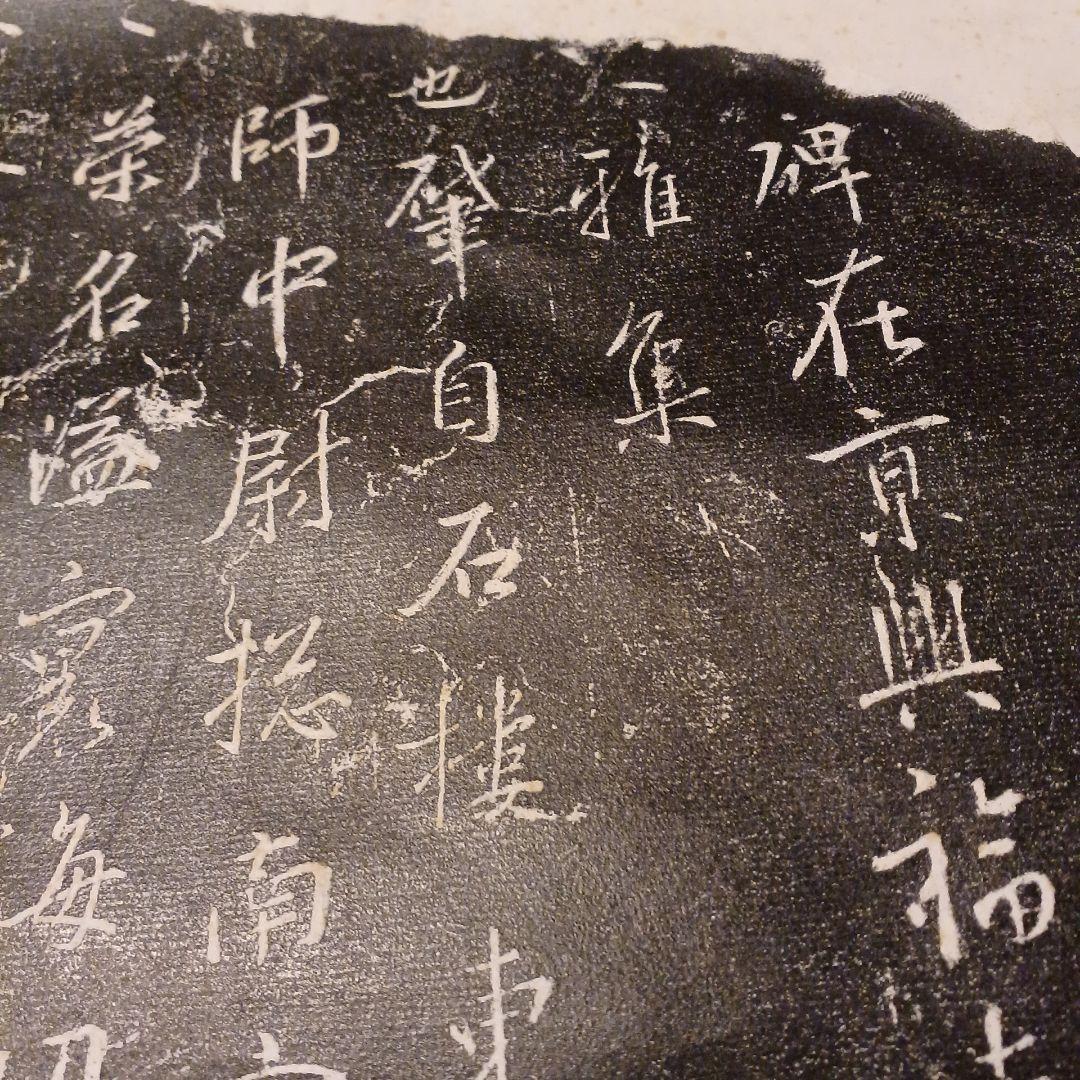 碑在京興福寺
一雅集
也肇自石樓東
師中尉揔南
榮名溢寰海